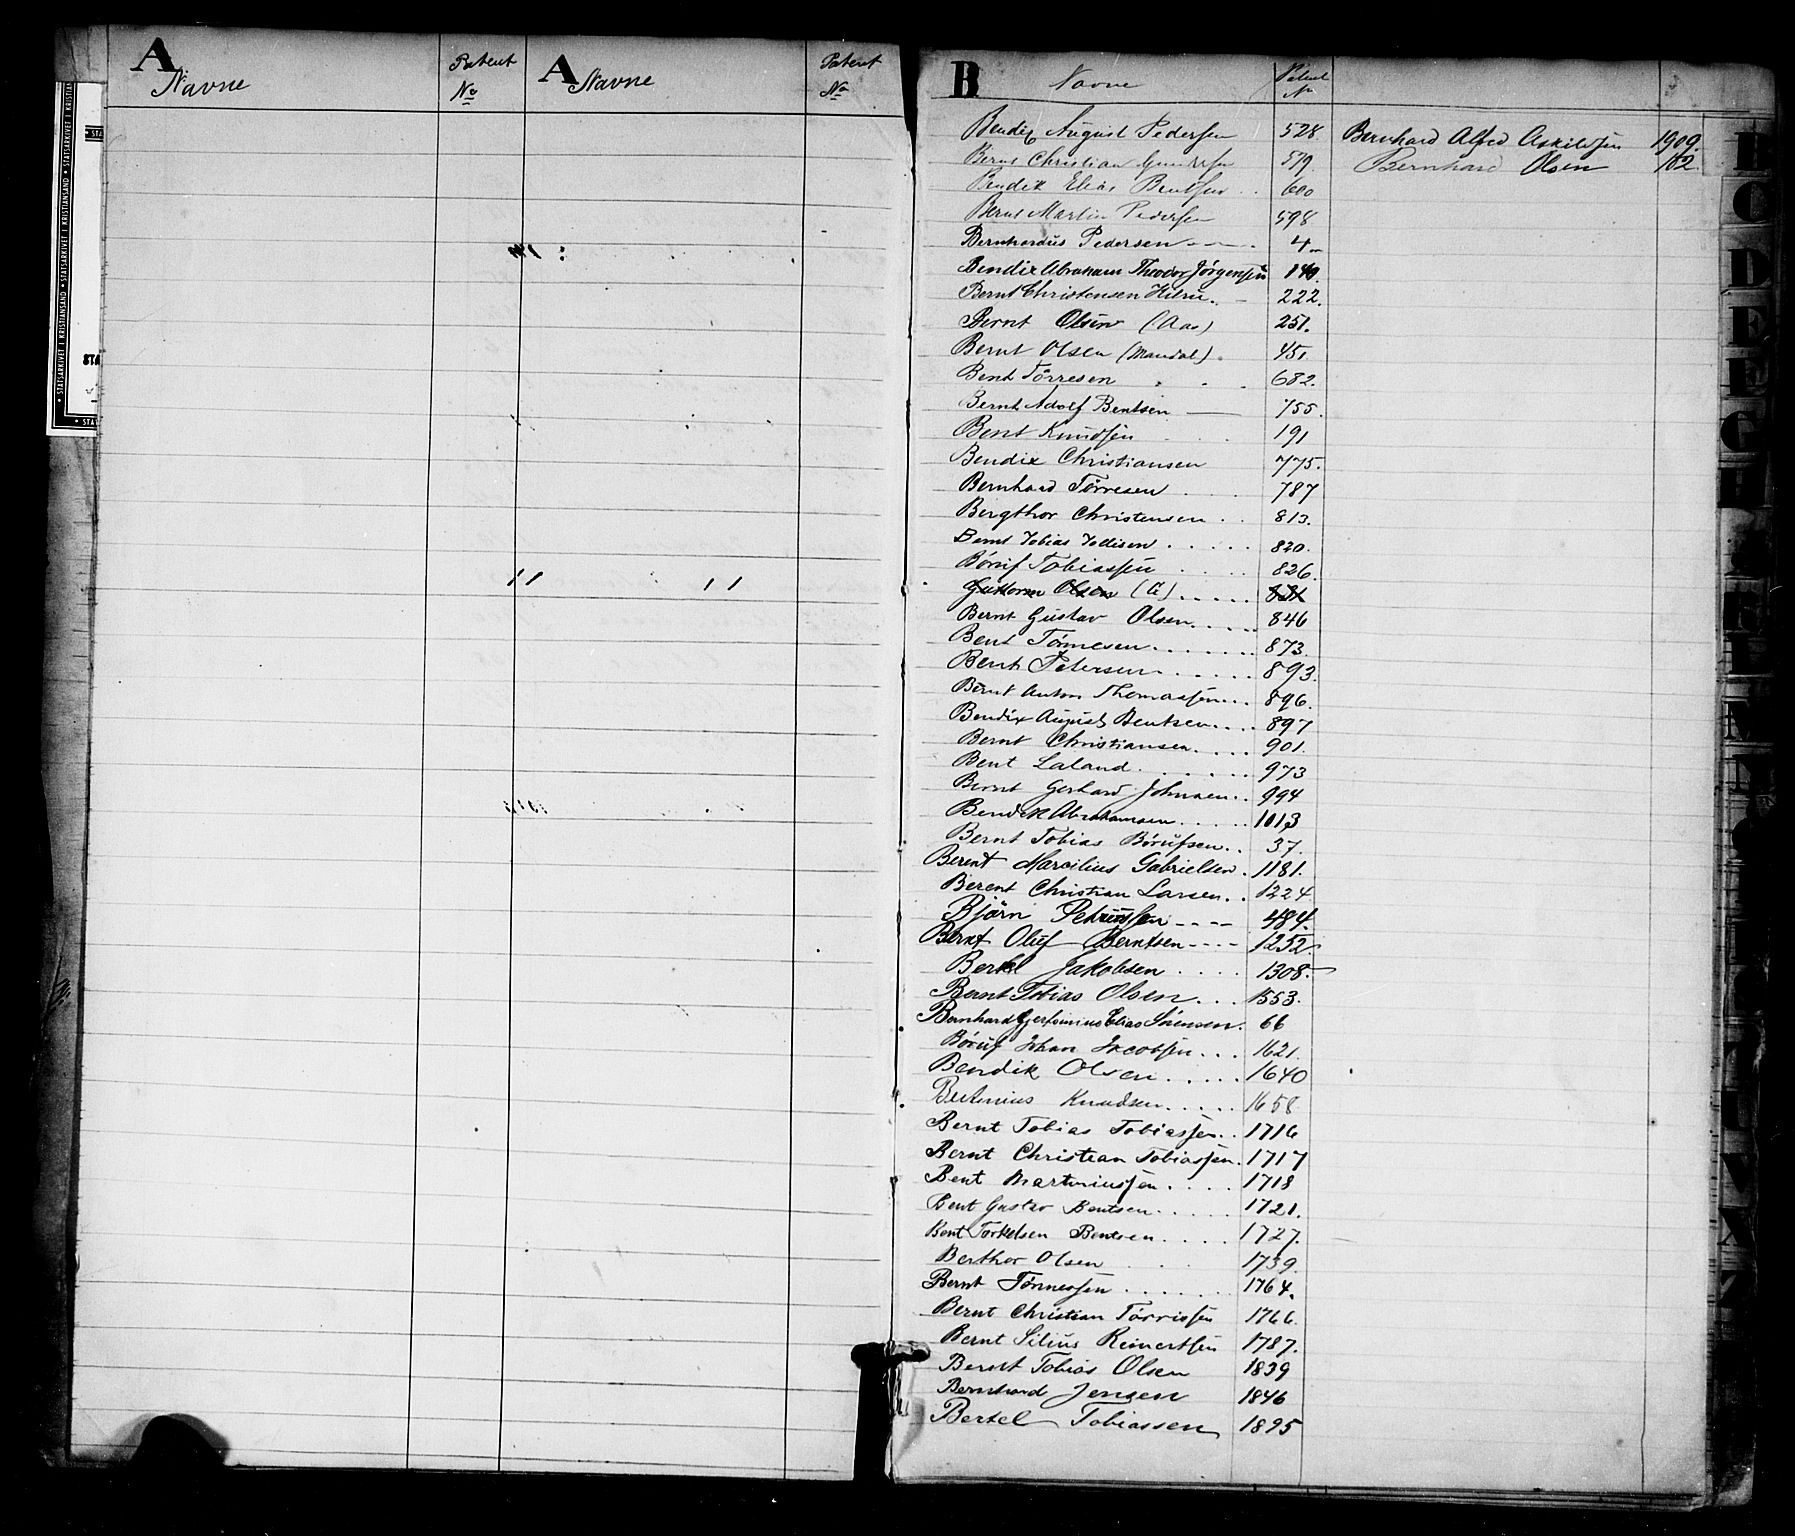 A
Navne
Patent
No
A
Navne
Patent
No
B
Navne
Patent
No
Bendix August Pedersen 528.
Bernt Christian Gundersen 579.
Bendik Elias Bentsen . . 600
Bernt Martin Pedersen 598
Bernhardus Pedersen 4
Bendix Abraham Theodor Jörgensen 149.
Bernt Christensen 222.
Bernt Olsen (Aas) 251.
Bernt Olsen (Mandal). 451.
Bent Törresen 682.
Bernt Adolf Bentsen 755.
Bent Knudsen 191
Bendix Christiansen 775.
Bernhard Törresen 787
Bergthor Christensen 813.
Bernt Tobias Tollisen 820.
Börüf Tobiassen 826.
Guttorm Olsen (G) 831
Bernt Gustav Olsen 846
Bent Tönnesen 873.
Bent Petersen 893.
Bernt Anton Thomassen 896.
Bendix August Bentsen 897
Bernt Christiansen 901.
Bent Laland 973
Bernt Gerhard Johnsen 994
Bendik Abrahamsen 1013
Bernt Tobias Börüfsen 37.
Berent Marcilius Gabrielsen 1181.
Berent Christian Larsen 1224
Björn Petersen 484.
Bernt Oluf Berntsen 1252
Bertel Jakobsen 1308.
Bernt Tobias Olsen 1553.
Bernhard Elias Sörensen 66
Börüf Johan Jacobsen 1621.
Bendik Olsen 1640
Knudsen 1658
Bernt Tobias Tobiassen 1716
Bernt Christian Tobiassen 1717
Bent Martiniussen 1718
Bent Gustav Bentsen 1721.
Bent Torkelsen Bentsen 1727.
Berthor Olsen 1739.
Bernt Tönnessen 1764.
Bernt Christian Törrissen 1766.
Bernt Silius Reinertsen 1787.
Bernt Tobias Olsen 1839
Bernhard Jensen 1846
Bertel Tobiassen 1895
Bernhard Alfred Askildsen 1909.
Bernhard Olsen 102.
STATSARKIVET I KRISTIANSAND